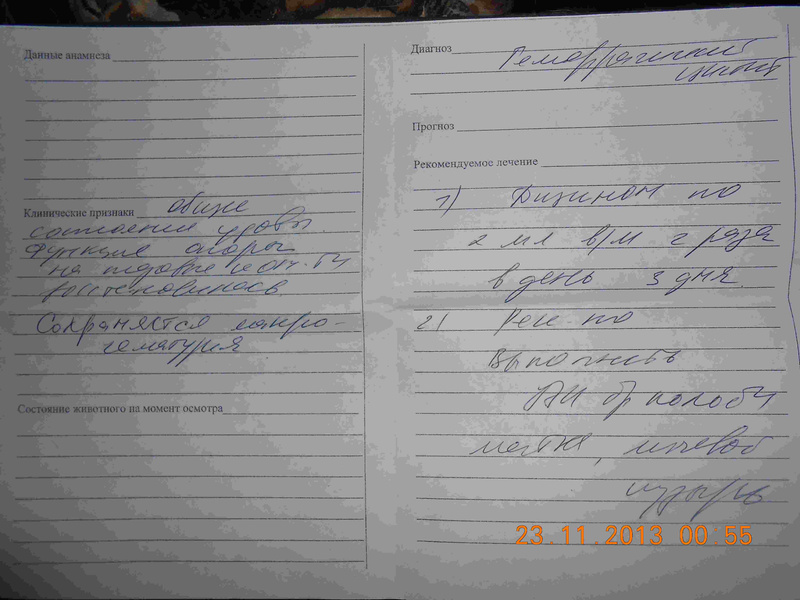 Данные анамнеза
Клинические признаки общее
состояние
Функция опоры
на тазовые
восстановилась.
Сохраняется макро-
гематурия
Состояние животного на момент осмотра
Диагноз Геморрагический
цистит
Прогноз
Рекомендуемое лечение
1) Дицинон по
2 мл в/м 2 раза
в день 3 дня.
2) Рек-но
выполнить
УЗИ бр полости
матка, мочевой
пузырь
23.11.2013 00:55